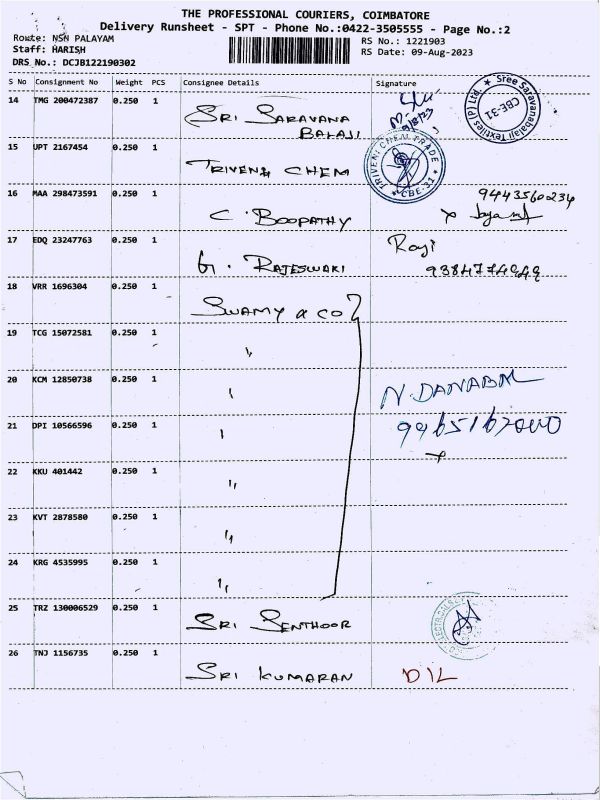 THE PROFESSIONAL COURIERS, COIMBATORE
Delivery Runsheet - SPT - Phone No.:0422-3505555 - Page No.:2
Route: NSN PALAYAM
Staff: HARISH
DRS No.: DCJB122190302
RS No.: 1221903
RS Date: 09-Aug-2023
S No Consignment No Weight PCS Consignee Details Signature
14 TMG 200472387 0.250 1 SRI SARAVANA
BALAJI
Sree Saravanabalaji Textiles (P) Ltd. ★ CBE-31
15 UPT 2167454 0.250 1 TRIVENI CHEM
TRIVENI CHEM TRADE ★ CBE-31 ★
16 MAA 298473591 0.250 1 C. BOOPATHY 9443560234
17 EDQ 23247763 0.250 1 G. RAJESWARI Raji
9384774949
18 VRR 1696304 0.250 1 SWAMY & CO
19 TCG 15072581 0.250 1 "
20 KCM 12850738 0.250 1 "
21 DPI 10566596 0.250 1 "
22 KKU 401442 0.250 1 "
23 KVT 2878580 0.250 1 "
24 KRG 4535995 0.250 1 "
25 TRZ 130006529 0.250 1 SRI SENTHOOR
26 TNJ 1156735 0.250 1 SRI KUMARAN D/L